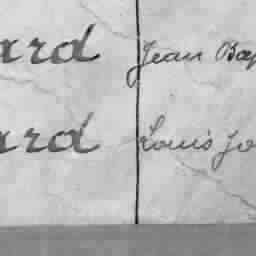 ard Jean Bap
ard Louis Jo